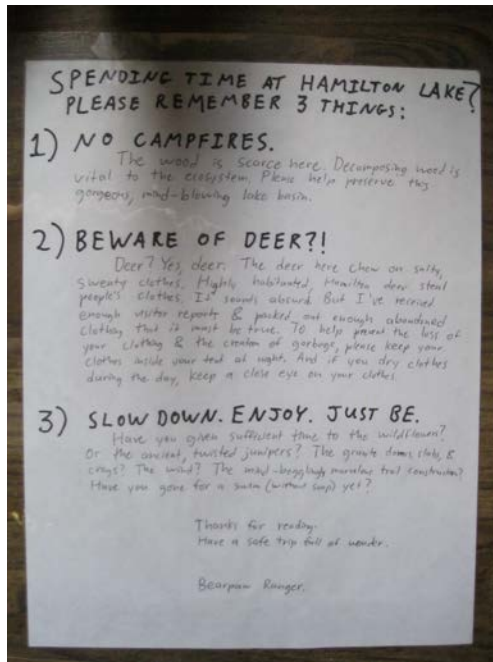 SPENDING TIME AT HAMILTON LAKE?
PLEASE REMEMBER 3 THINGS:
1) NO CAMPFIRES.
The wood is scarce here. Decomposing wood is
vital to the ecosystem. Please help preserve this
gorgeous, mind-blowing lake basin.
2) BEWARE OF DEER?!
Deer? Yes, deer. The deer here chew on salty,
sweaty clothes. Highly habituated, Hamilton deer steal
people's clothes. It sounds absurd. But I've received
enough visitor reports & packed out enough abandoned
clothing that it must be true. To help prevent the loss of
your clothing & the creation of garbage, please keep your
clothes inside your tent at night. And if you dry clothes
during the day, keep a close eye on your clothes.
3) SLOW DOWN. ENJOY. JUST BE.
Have you given sufficient time to the wildflowers?
Or the ancient, twisted junipers? The granite domes, slabs, &
crags? The wind? The mind-bogglingly marvelous trail construction?
Have you gone for a swim (without soap) yet?
Thanks for reading.
Have a safe trip full of wonder.
Bearpaw Ranger.